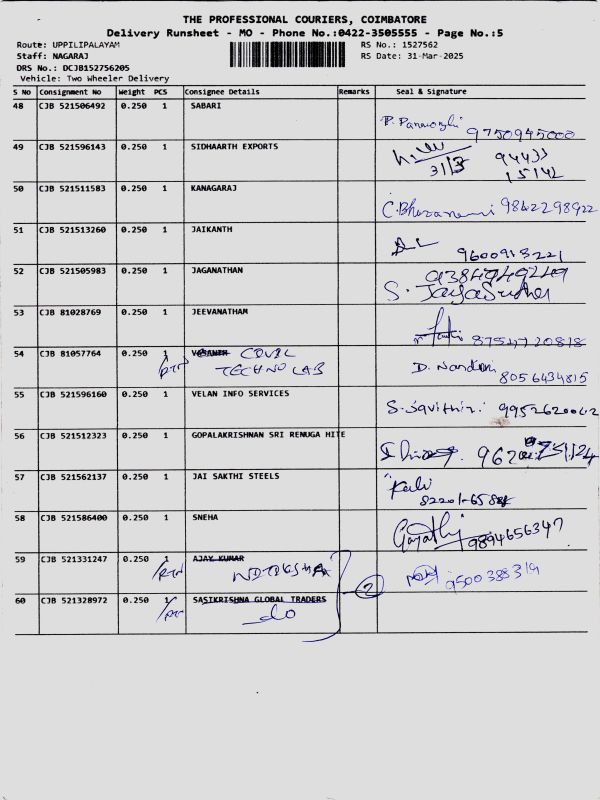 THE PROFESSIONAL COURIERS, COIMBATORE
Delivery Runsheet - MO - Phone No.:0422-3505555 - Page No.:5
Route: UPPILIPALAYAM RS No.: 1527562
Staff: NAGARAJ RS Date: 31-Mar-2025
DRS No.: DCJB152756205
Vehicle: Two Wheeler Delivery
S No Consignment No Weight PCS Consignee Details Remarks Seal & Signature
48 CJB 521506492 0.250 1 SABARI 9750945000
49 CJB 521596143 0.250 1 SIDHAARTH EXPORTS 31/3 94433 15142
50 CJB 521511583 0.250 1 KANAGARAJ 9842298922
51 CJB 521513260 0.250 1 JAIKANTH 9600913221
52 CJB 521505983 0.250 1 JAGANATHAN S. Jayasudha
53 CJB 81028769 0.250 1 JEEVANATHAM 8754720818
54 CJB 81057764 0.250 1 COVAL D. Nandini
TECHNO LAB 8056434815
55 CJB 521596160 0.250 1 VELAN INFO SERVICES S. Savithiri 9952620042
56 CJB 521512323 0.250 1 GOPALAKRISHNAN SRI RENUGA HITE
57 CJB 521562137 0.250 1 JAI SAKTHI STEELS
58 CJB 521586400 0.250 1 SNEHA Gayathri 9894656347
59 CJB 521331247 0.250 1 AJAY KUMAR
2 9500388319
60 CJB 521328972 0.250 1 SASIKRISHNA GLOBAL TRADERS
do